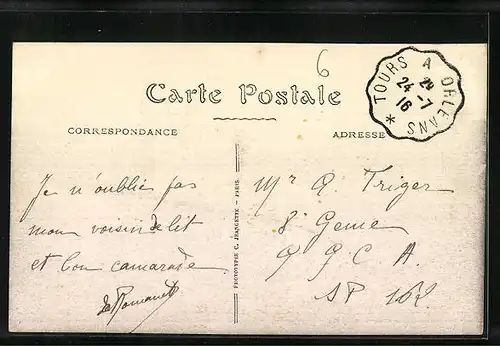 6
TOURS A ORLEANS *
24
29 -7
16
Carte Postale
CORRESPONDANCE
ADRESSE
Je n'oublie pas
mon voisin de lit
et bon camarade
PHOTOTYPIE C. JEANGETTE - PARIS.
Mr A. Triger
8e Genie
C. A.
SP 162